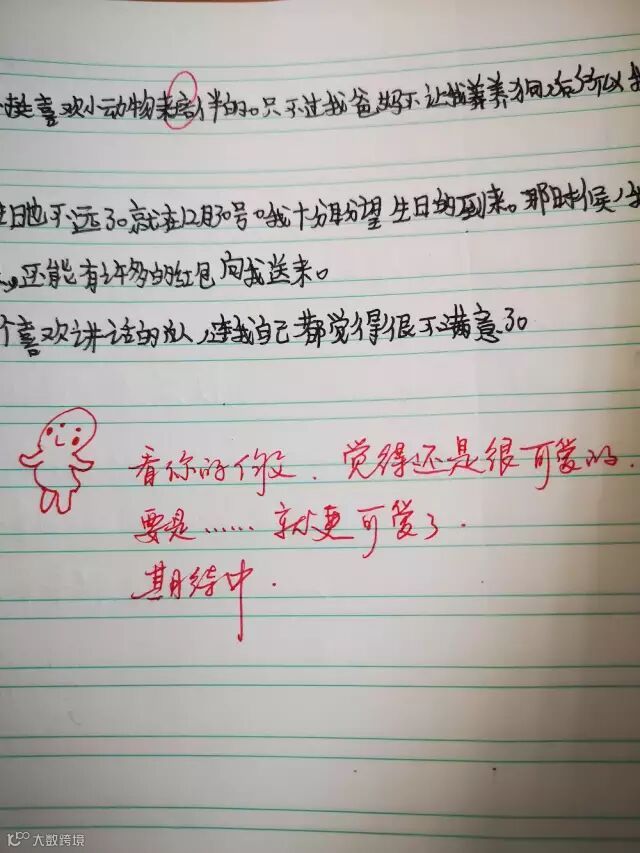 喜欢小动物来陪伴的。只不过我爸妈不让我养狗,
生日也不远了。就在12月30号。我十分盼望生日的到来。那时候,我
还能有许多的红包向我送来。
个喜欢讲话的人,连我自己都觉得很不满意了。
看你的作文,觉得还是很可爱的.
要是……就更可爱了.
期待中.
大数跨境